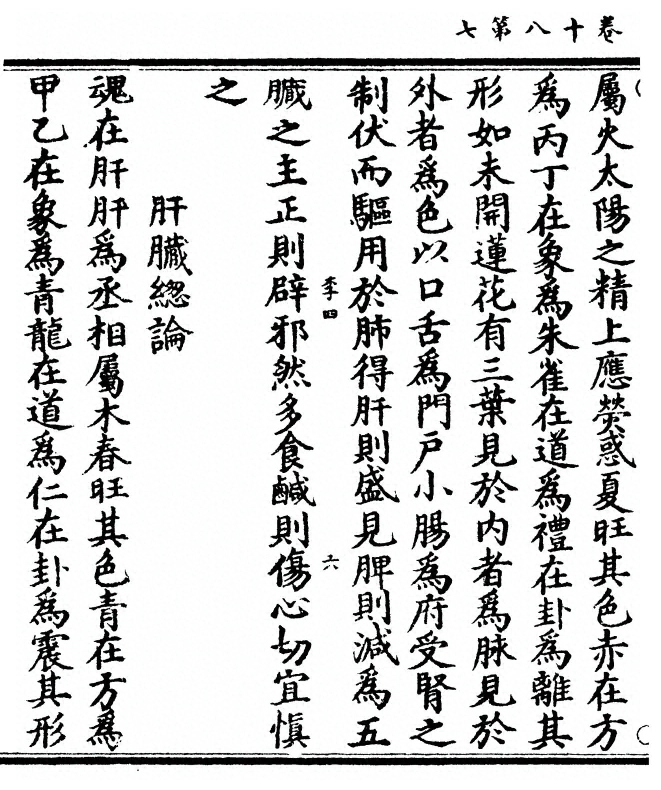 卷十八第七
屬火太陽之精上應熒惑夏旺其色赤在方
為丙丁在象為朱雀在道為禮在卦為離其
形如未開蓮花有三葉見於内者為脉見於
外者為色以口舌為門戸小腸為府受腎之
制伏而驅用於肺得肝則盛見脾則減為五
李四
六
臓之主正則辟邪然多食鹹則傷心切宜慎
之
肝臓緫論
魂在肝肝為丞相屬木春旺其色青在方為
甲乙在象為青龍在道為仁在卦為震其形